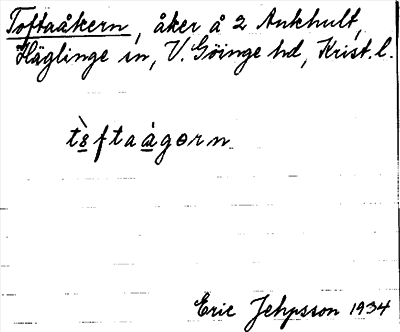 Toftaåkern, åker å 2 Ankhult,
Häglinge sn, V. Göinge hd, Krist. l.
tòftaågərn
Eric Jehpsson 1934